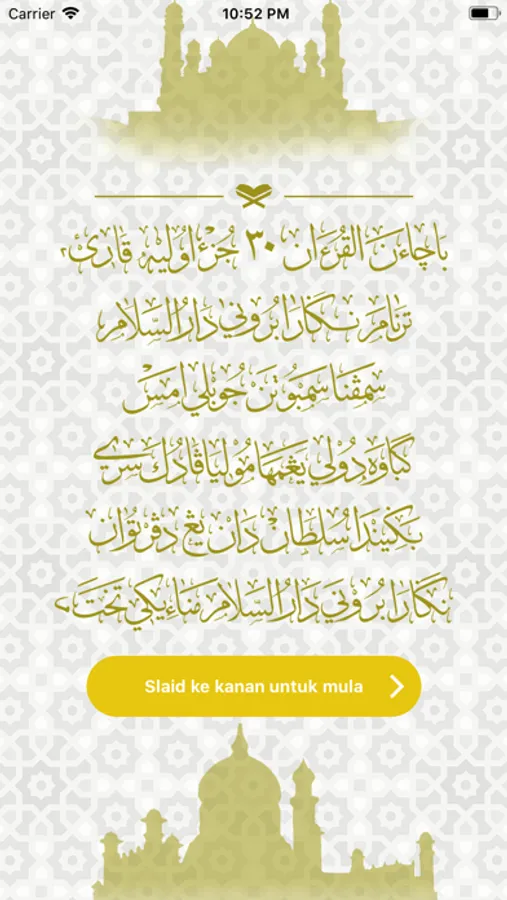 Carrier 10:52 PM
باچاءن القرءان ٣٠ جزء اوليه قارئ٢
ترنام نݢارا بروني دارالسلام
سمڤنا سمبوتن جوبلي امس
کباوه دولي يڠمها موليا ڤادوک سري
بݢيندا سلطان دان يڠ دڤرتوان
نݢارا بروني دارالسلام مناءيکي تختا
Slaid ke kanan untuk mula